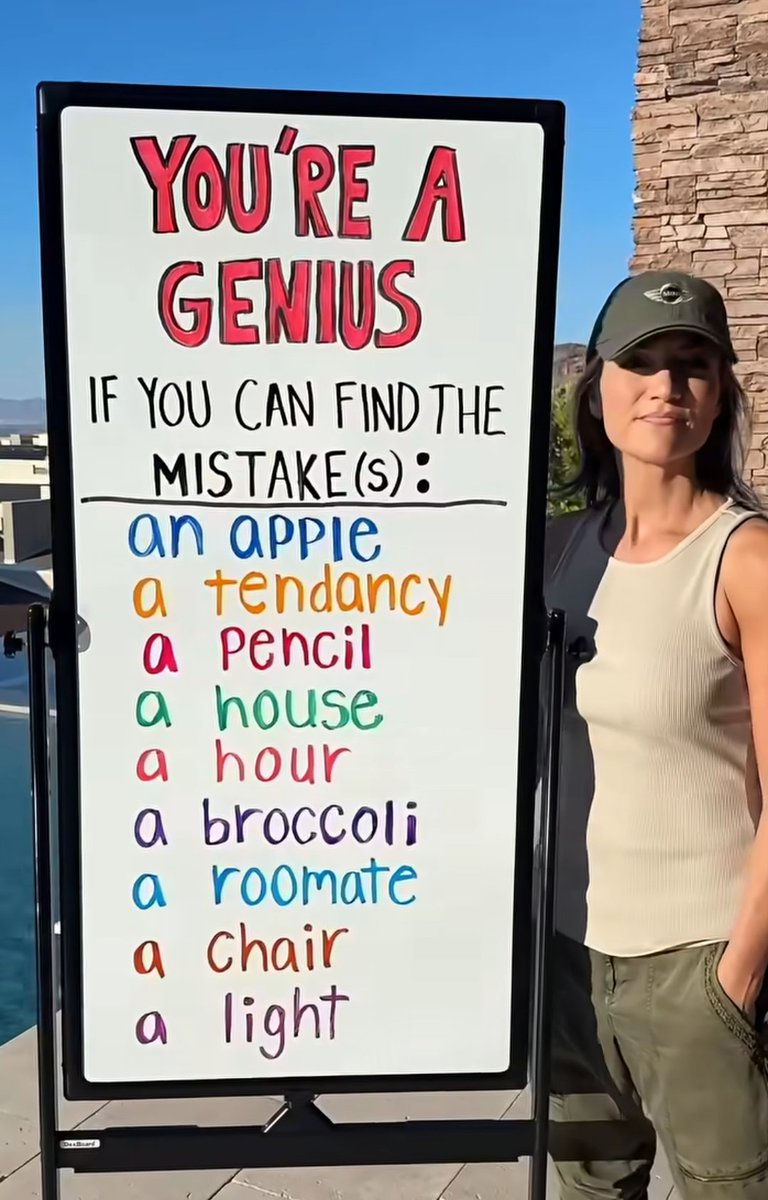 YOU'RE A
GENIUS
IF YOU CAN FIND THE
MISTAKE(S):
an apple
a tendancy
a pencil
a house
a hour
a broccoli
a roomate
a chair
a light
MINI
DexBoard